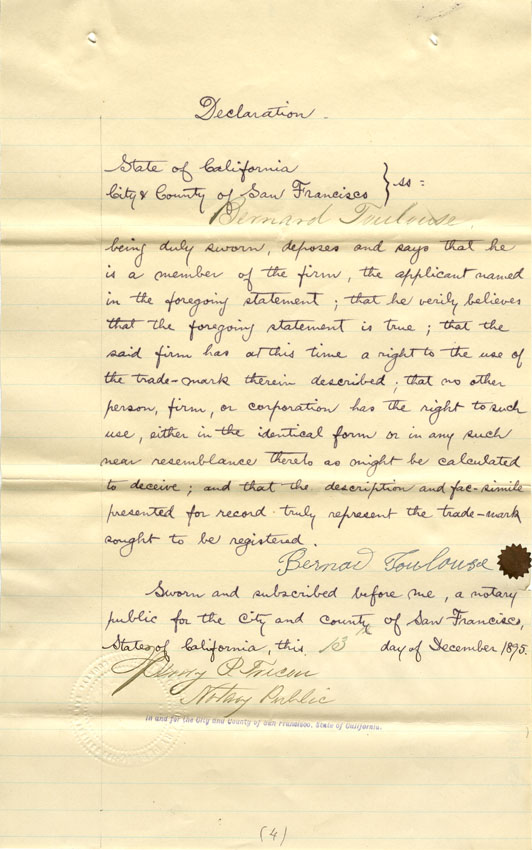 Declaration.
State of California
City & County of San Francisco } ss:
Bernard Toulouse,
being duly sworn, deposes and says that he
is a member of the firm, the applicant named
in the foregoing statement; that he verily believes
that the foregoing statement is true; that the
said firm has at this time a right to the use of
the trade-mark therein described; that no other
person, firm, or corporation has the right to such
use, either in the identical form or in any such
near resemblance thereto as might be calculated
to deceive; and that the description and fac-simile
presented for record truly represent the trade-mark
sought to be registered.
Bernard Toulouse
Sworn and subscribed before me, a notary
public for the City and County of San Francisco,
State of California, this 13th day of December, 1895.
Henry P. Tricou
Notary Public
In and for the City and County of San Francisco, State of California.
(4)